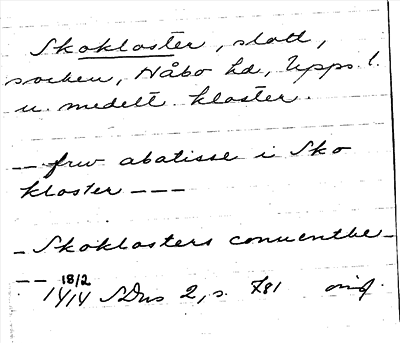 Skokloster, slott,
socken, Håbo hd, Upps. l.
u. medelt. kloster.
— frw abatisse i Sko
kloster – – –
– Skoklosters conuentbe –
– – 18/2
1414 SDns 2, s. 781 orig.